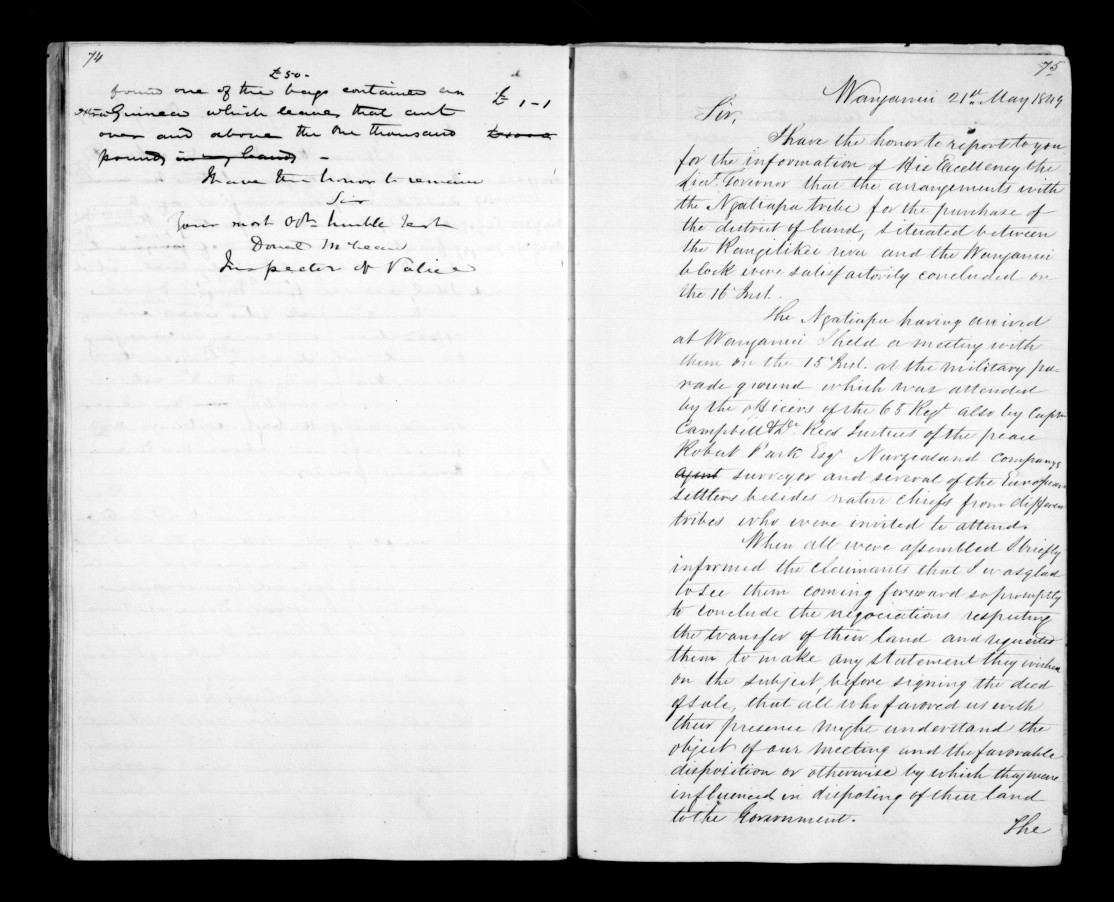 74
£50-
found one of the bags contained an
Guinea which leaves that amt £ 1-1
over and above the One thousand
pounds in my hands -
I have the honor to remain
Sir
Your most Obt humble Servt
Donal McLean
Inspector of Police
75
Wanganui 21st May 1849
Sir,
I have the honor to report to you
for the information of His Excellency the
Lieut. Governor that the arrangements with
the Ngatiapa tribe for the purchase of
the district of land, situated between
the Rangitikei river and the Wanganui
block were satisfactorily concluded on
the 16 Inst.
The Ngatiapa having arrived
at Wanganui I held a meeting with
them on the 15 Inst. at the military pa-
rade ground which was attended
by the officers of the 65 Regt also by Captn
Campbell & Dr Rees Justices of the peace
Robert Park Esqr New Zealand Companys
Agent surveyor and several of the European
settlers besides native chiefs from different
tribes who were invited to attend.
When all were assembled I briefly
informed the claimants that I was glad
to see them coming forward so promptly
to conclude the negociations respecting
the transfer of their land and requested
them to make any statement they wished
on the subject, before signing the deed
of sale, that all who favored us with
their presence might understand the
object of our meeting and the favorable
disposition or otherwise by which they were
influenced in disposing of their land
to the Government.
The